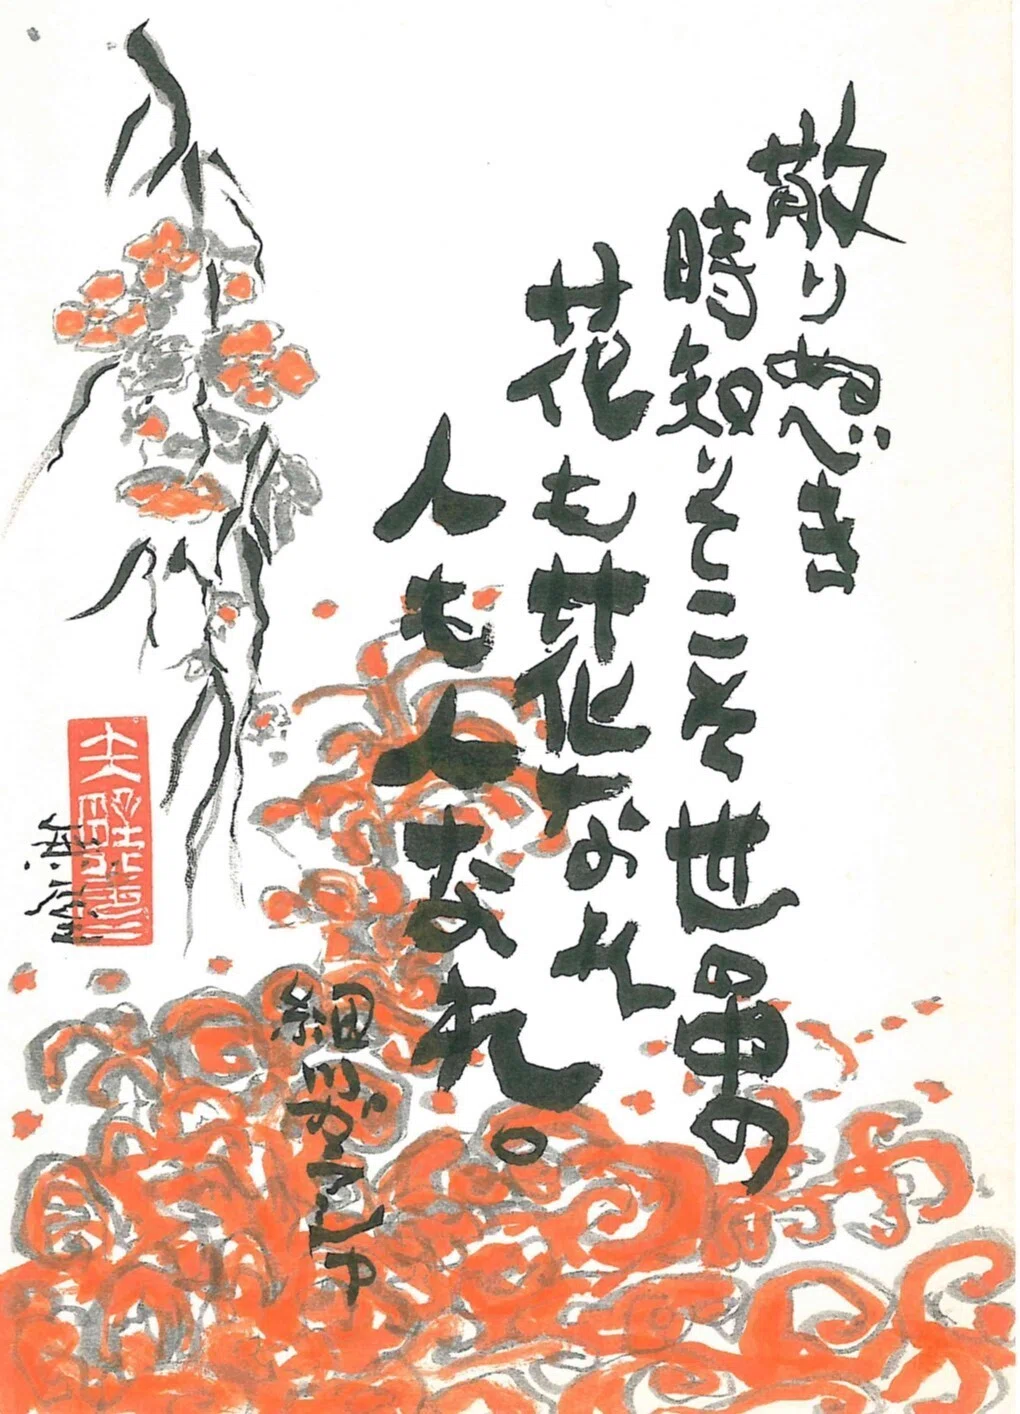 散りぬべき
時知りてこそ世の中の
花も花なれ
人も人なれ。
細川